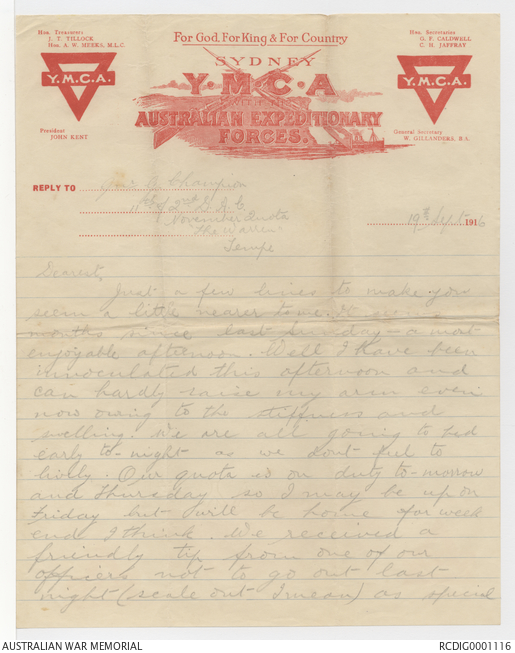 For God, For King & For Country
Hon. Treasurers
J. T. TILLOCK
Hon. A. W. MEEKS, M.L.C.
Y.M.C.A.
President
JOHN KENT
SYDNEY
Y·M·C·A
WITH THE
AUSTRALIAN EXPEDITIONARY
FORCES.
Hon. Secretaries
G. F. CALDWELL
C. H. JAFFRAY
Y.M.C.A.
General Secretary
W. GILLANDERS, B.S.
REPLY TO
Champion
11th of 2nd
November Quota
The Warren
Tempe
19th Sept 1916
Dearest,
Just a few lines to make you
seem a little nearer to me. It seems
months since last Sunday – a most
enjoyable afternoon. Well I have been
innoculated this afternoon and
can hardly raise my arm even
now owing to the stiffness and
swelling. We are all going to bed
early to-night as we dont feel to
lively. Our quota is on duty to-morrow
and Thursday so I may be up on
Friday but will be home for week
end I think. We received a
friendly tip from one of our
officers not to go out last
night (scale out I mean) as special
AUSTRALIAN WAR MEMORIAL
RCDIG0001116